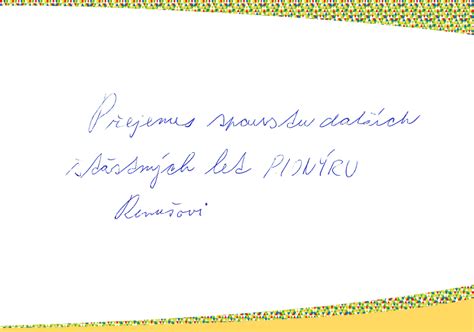 Přejeme spoustu dalších
šťastných let PIONÝRU